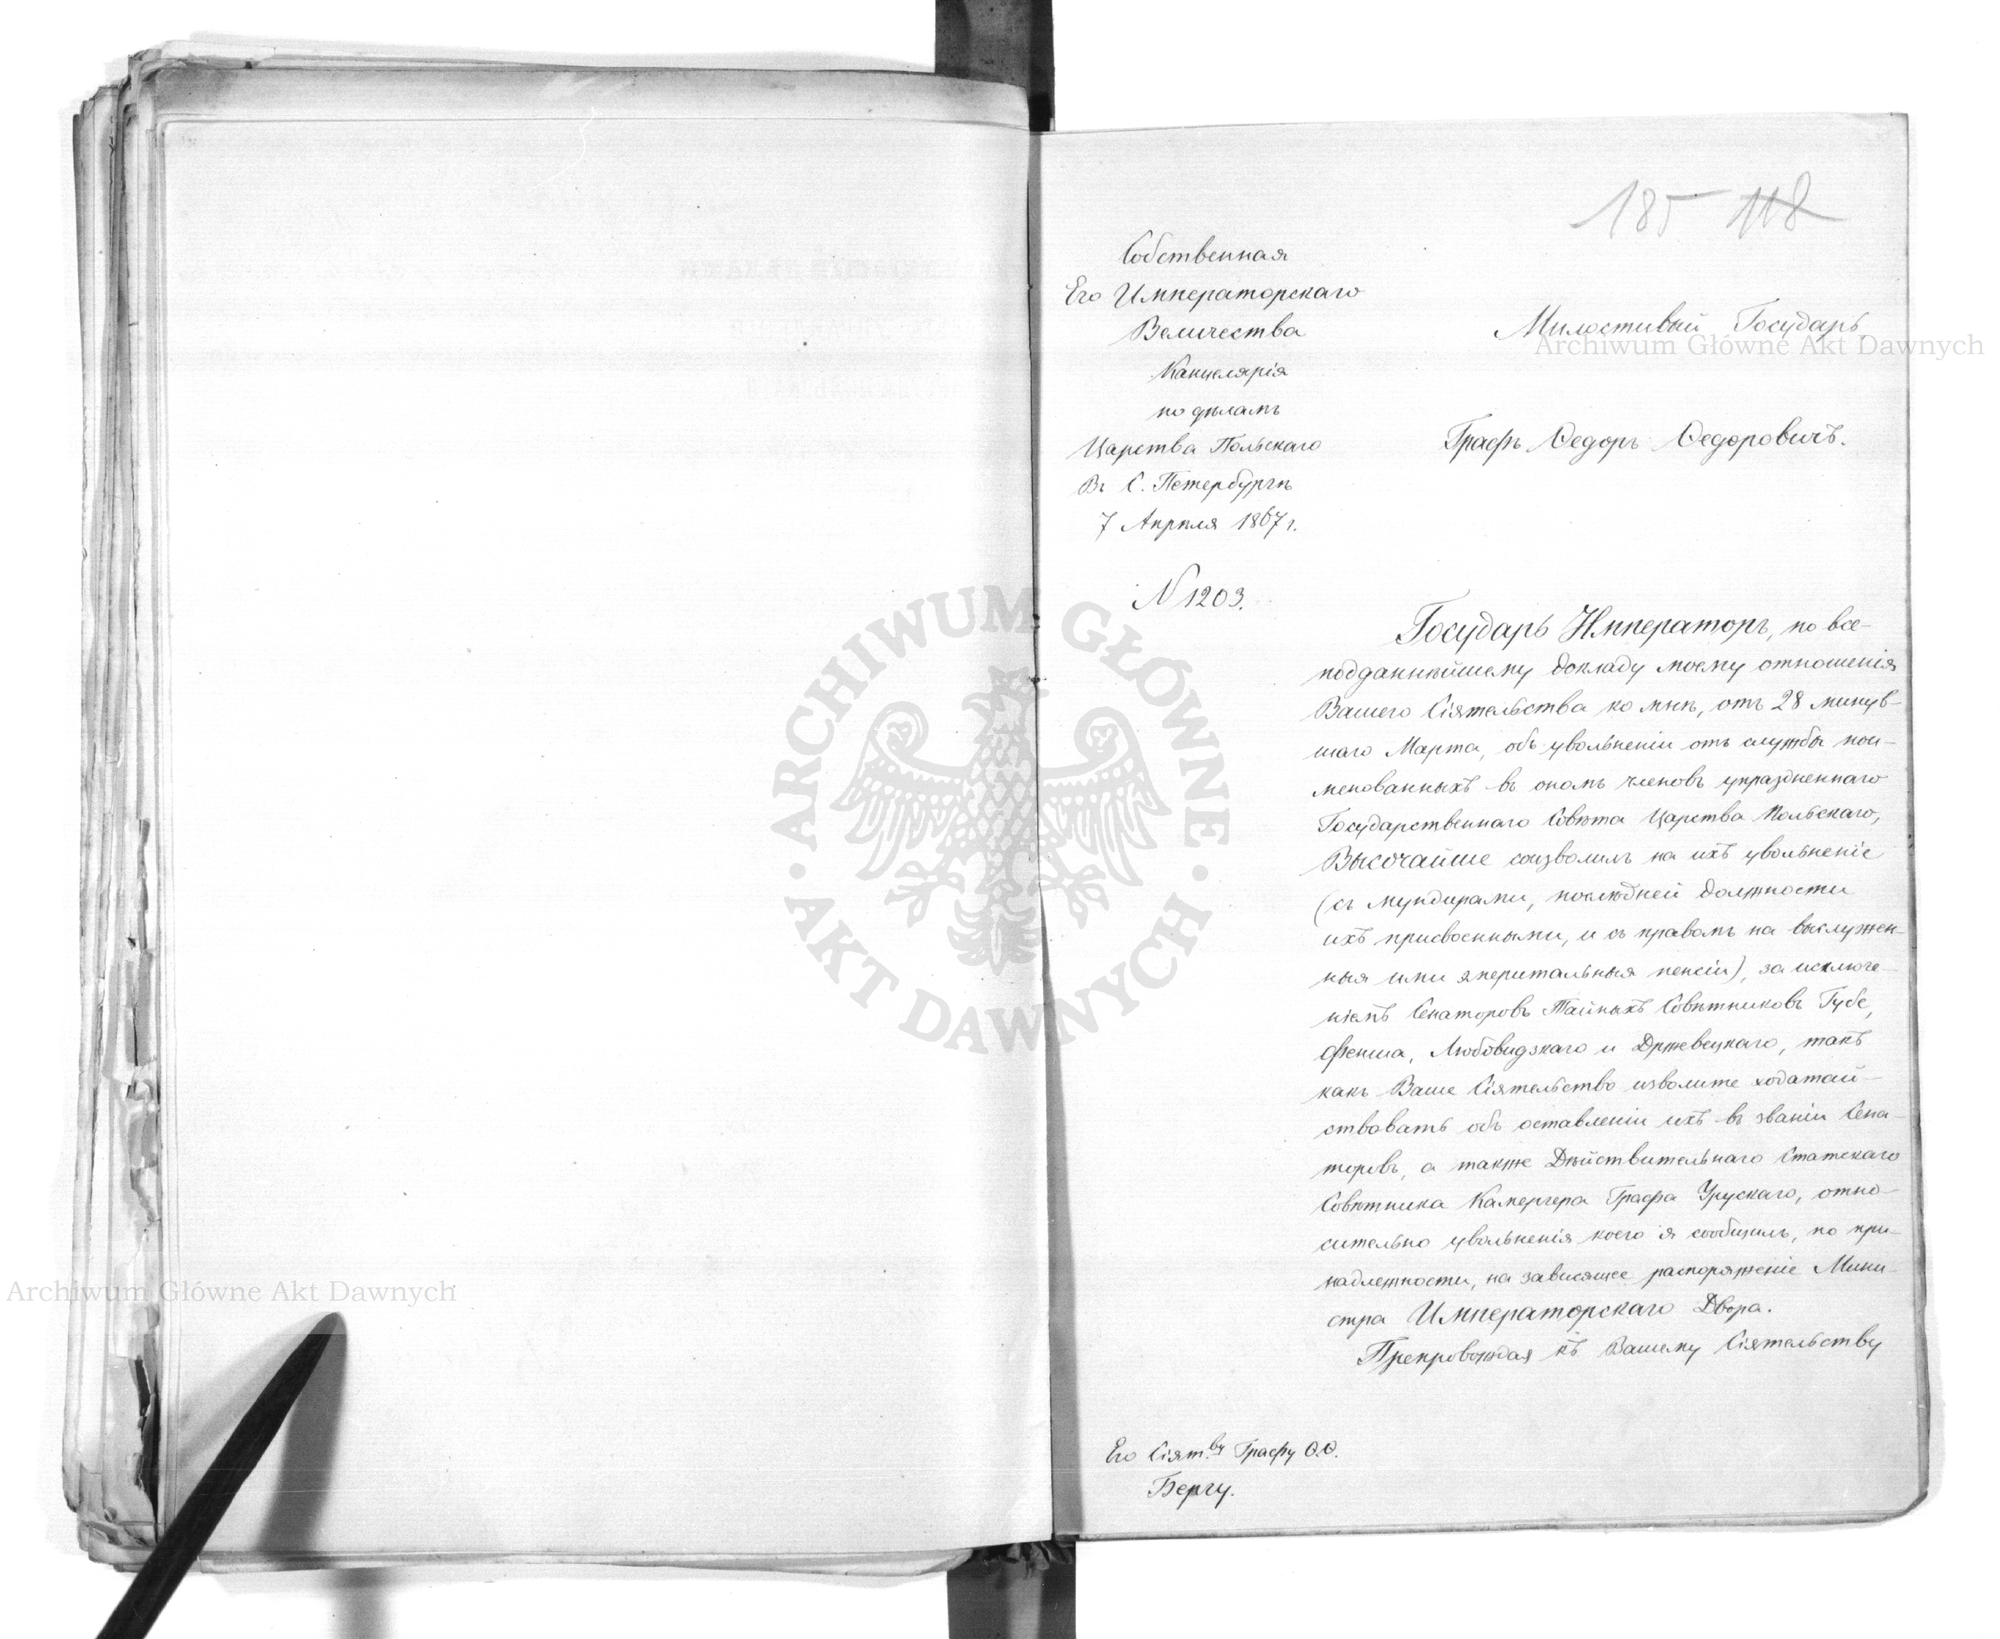 185 118
Собственная
Его Императорскаго
Величества
Канцелярія
по дѣламъ
Царства Польскаго
Въ С. Петербургѣ
7 Апрѣля 1867 г.
N 1203.
Милостивый Государь
Графъ Ѳедоръ Ѳедоровичъ.
Государь Императоръ, по все-
подданнѣйшему докладу моему отношенія
Вашего Сіятельства ко мнѣ, отъ 28 минув-
шаго Марта, объ увольненіи отъ службы пои-
менованныхъ въ ономъ членовъ упраздненнаго
Государственнаго Совѣта Царства Польскаго,
Высочайше соизволилъ на ихъ увольненіе
(съ мундирами, послѣдней должности
ихъ присвоенными, и съ правомъ на выслужен-
ныя ими эмеритальныя пенсіи), за исключе-
ніемъ Сенаторовъ Тайныхъ Совѣтниковъ Губе,
Фенша, Любовидзкаго и Држевецкаго, такъ
какъ Ваше Сіятельство изволите ходатай-
ствовать объ оставленіи ихъ въ званіи Сена-
торовъ, а также Дѣйствительнаго Статскаго
Совѣтника Камергера Графа Урускаго, отно-
сительно увольненія коего я сообщилъ, по при-
надлежности, на зависящее распоряженіе Мини-
стра Императорскаго Двора.
Препровождая къ Вашему Сіятельству
Его Сіят.ву Графу Ѳ.Ѳ.
Бергу.
Archiwum Główne Akt Dawnych
ARCHIWUM GŁÓWNE · AKT DAWNYCH ·
Archiwum Główne Akt Dawnych